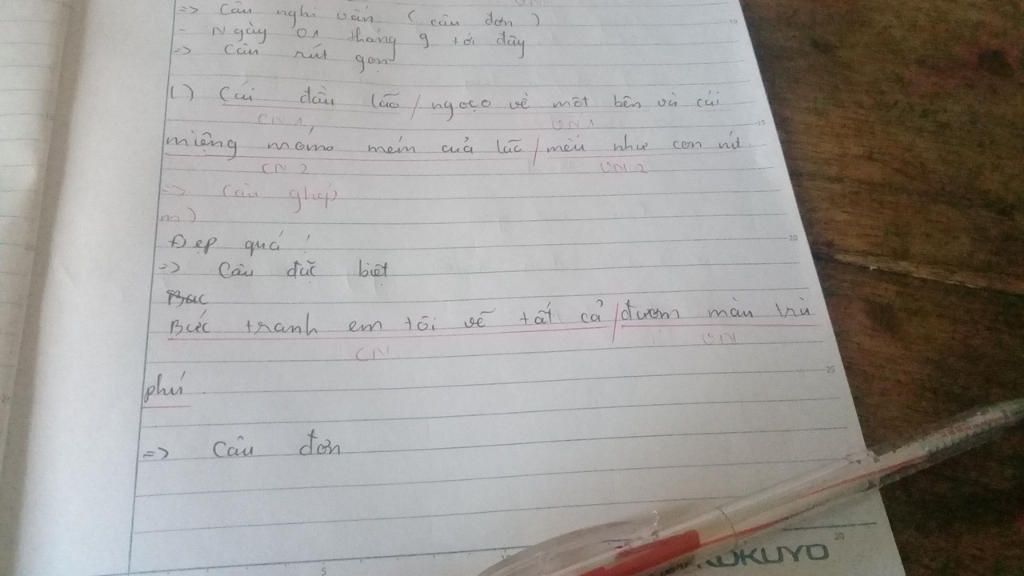 => Câu nghi vấn ( câu đơn )
- Ngày 01 tháng 9 tới đây
=> Câu rút gọn
l) Cái đầu lão / ngoẹo về một bên và cái
CN 1 VN 1
miệng móm mém của lão / mếu như con nít
CN 2 VN 2
=> Câu ghép
m)
Đẹp quá !
=> Câu đặc biệt
Bức tranh em tôi vẽ tất cả / đượm màu trù
CN VN
phú
=> Câu đơn
KOKUYO